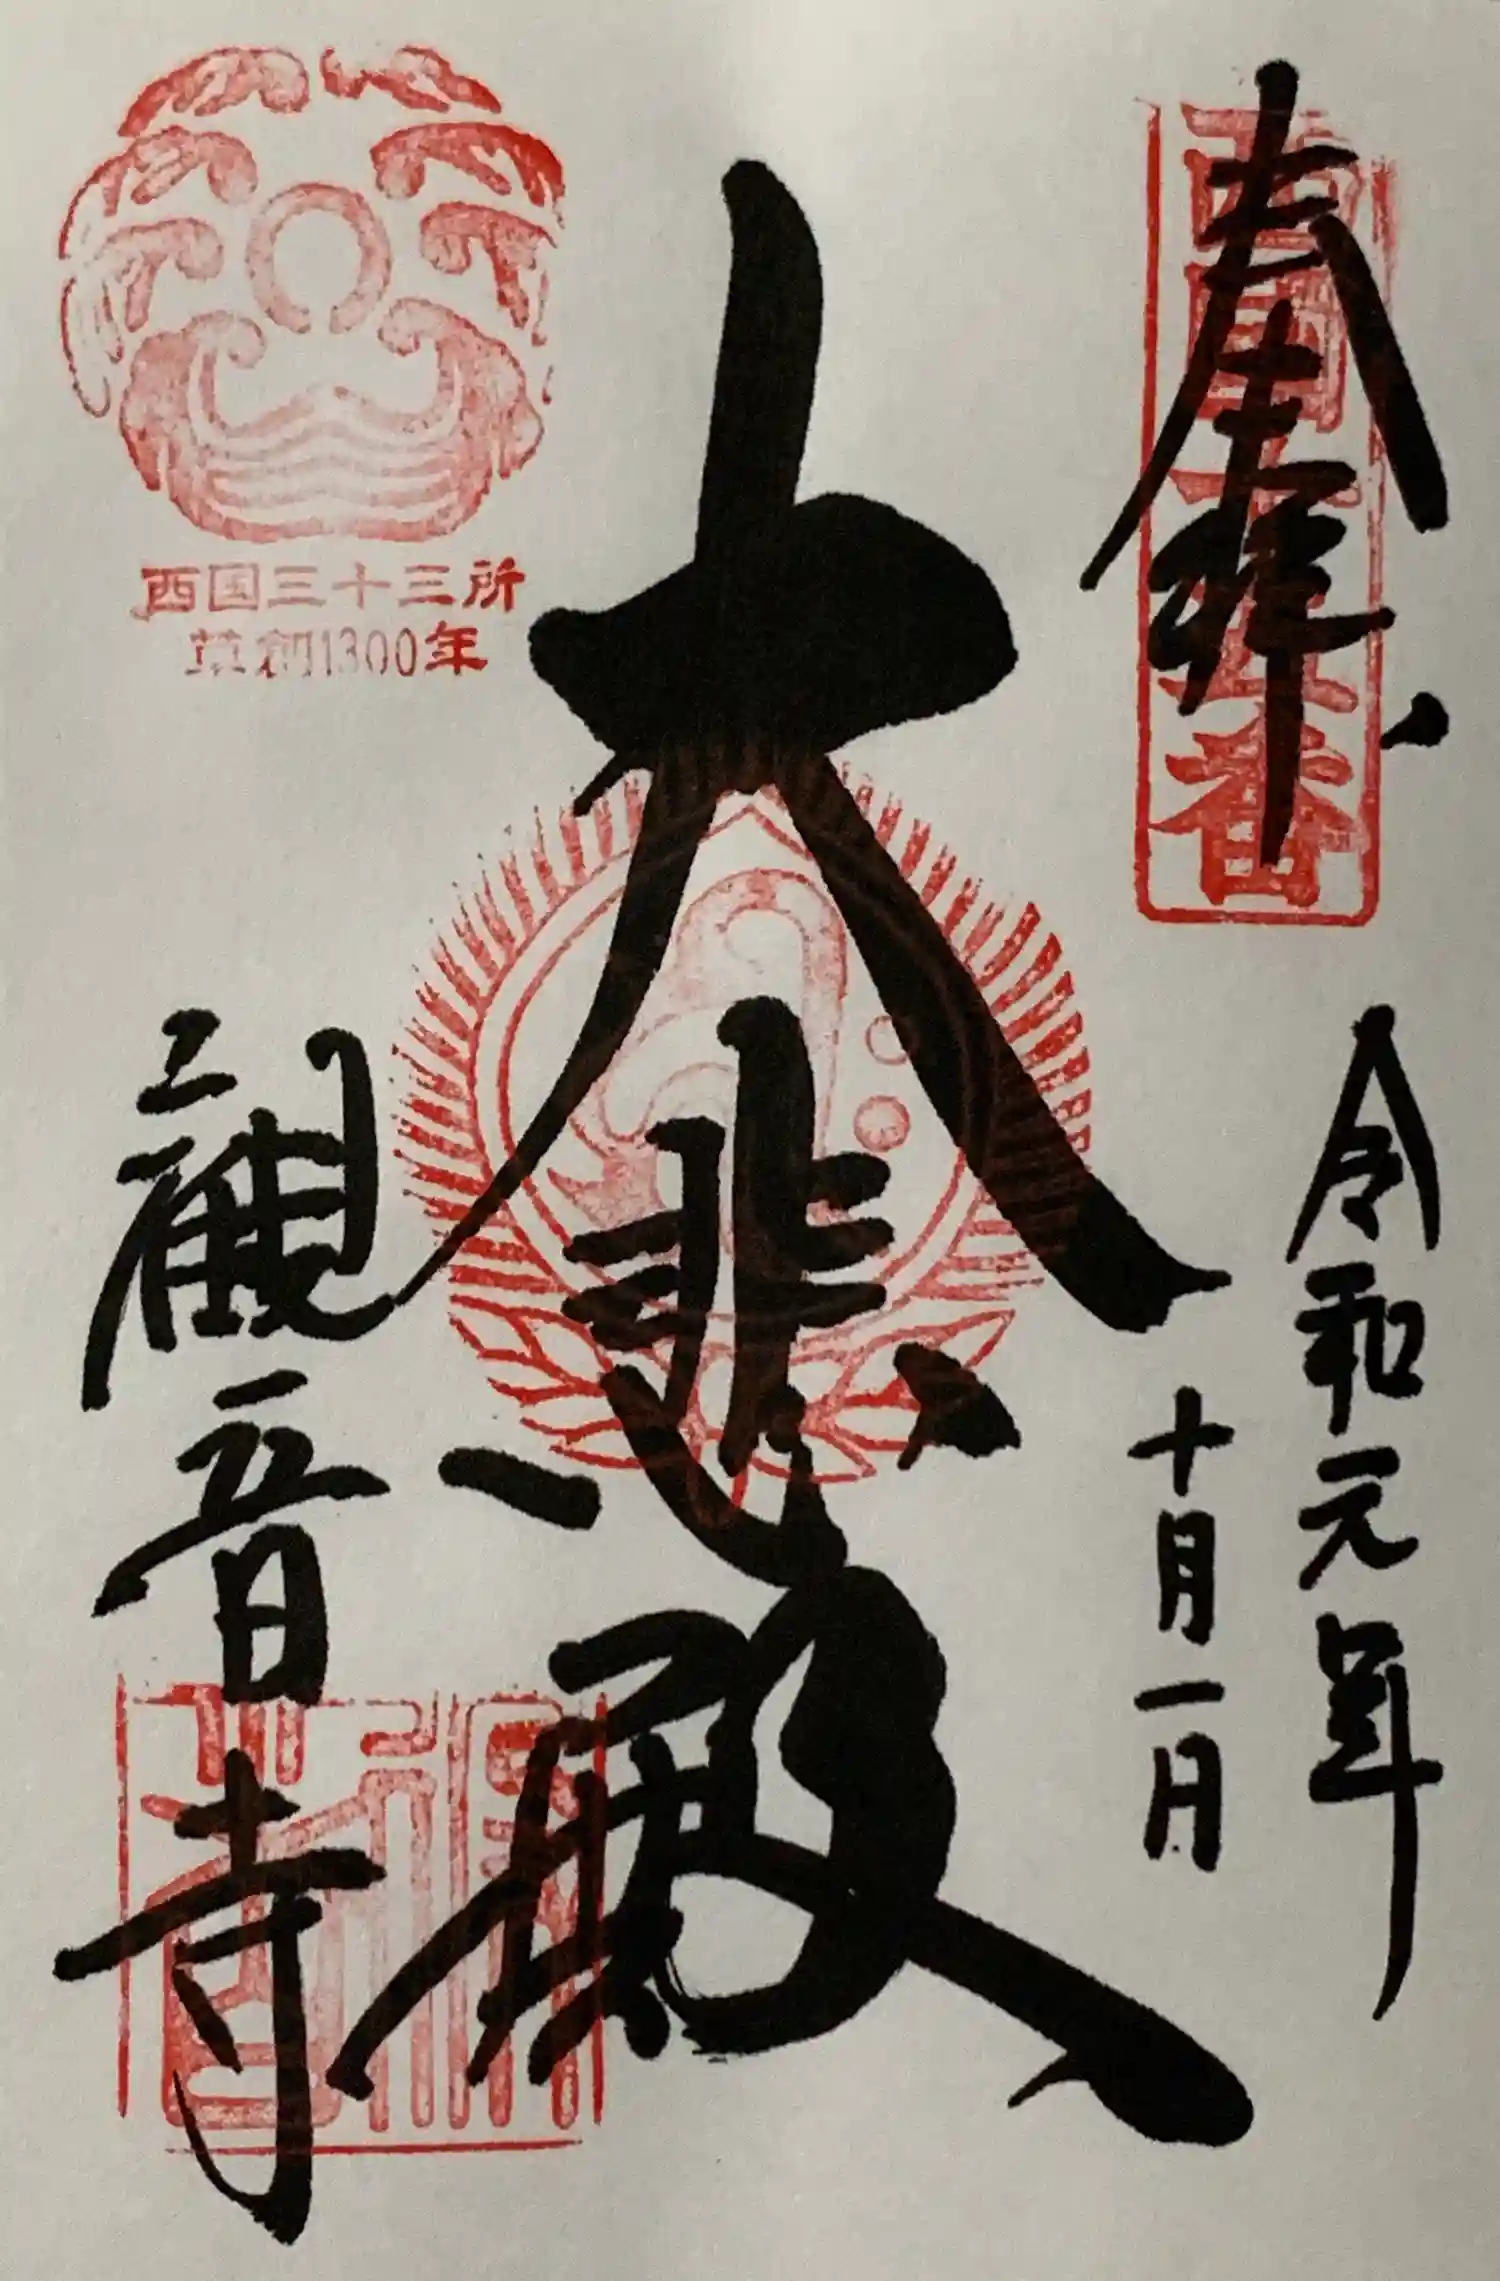 奉拝
西國十五番
令和元年
十月一日
大悲殿
西国三十三所
草創1300年
觀音寺